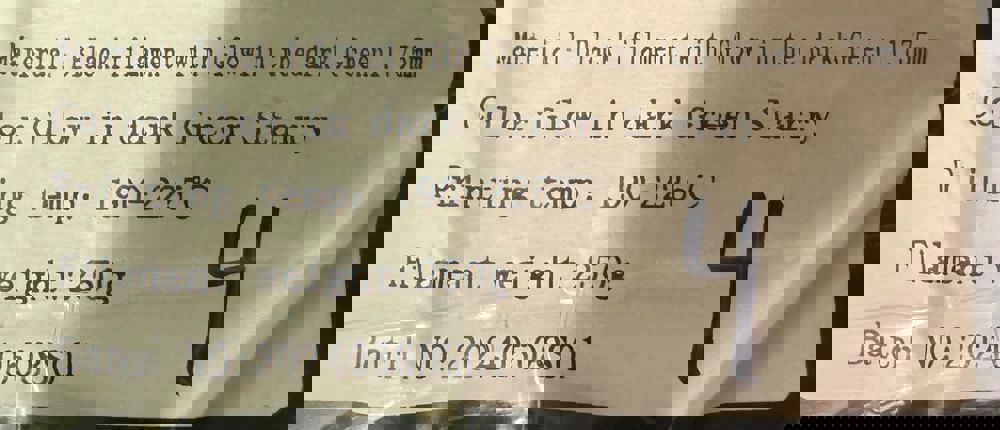 Material: Black filament with Glow in the dark Green 1.75mm Material: Black filament with Glow in the dark Green 1.75mm
Glow in dark Green Starry Color: Glow in dark Green Starry
temp: Printing temp:
weight: 250g Filament weight: 250g Filament we
0508S01 Batch NO:20240508S01 Batch NO:20240
4